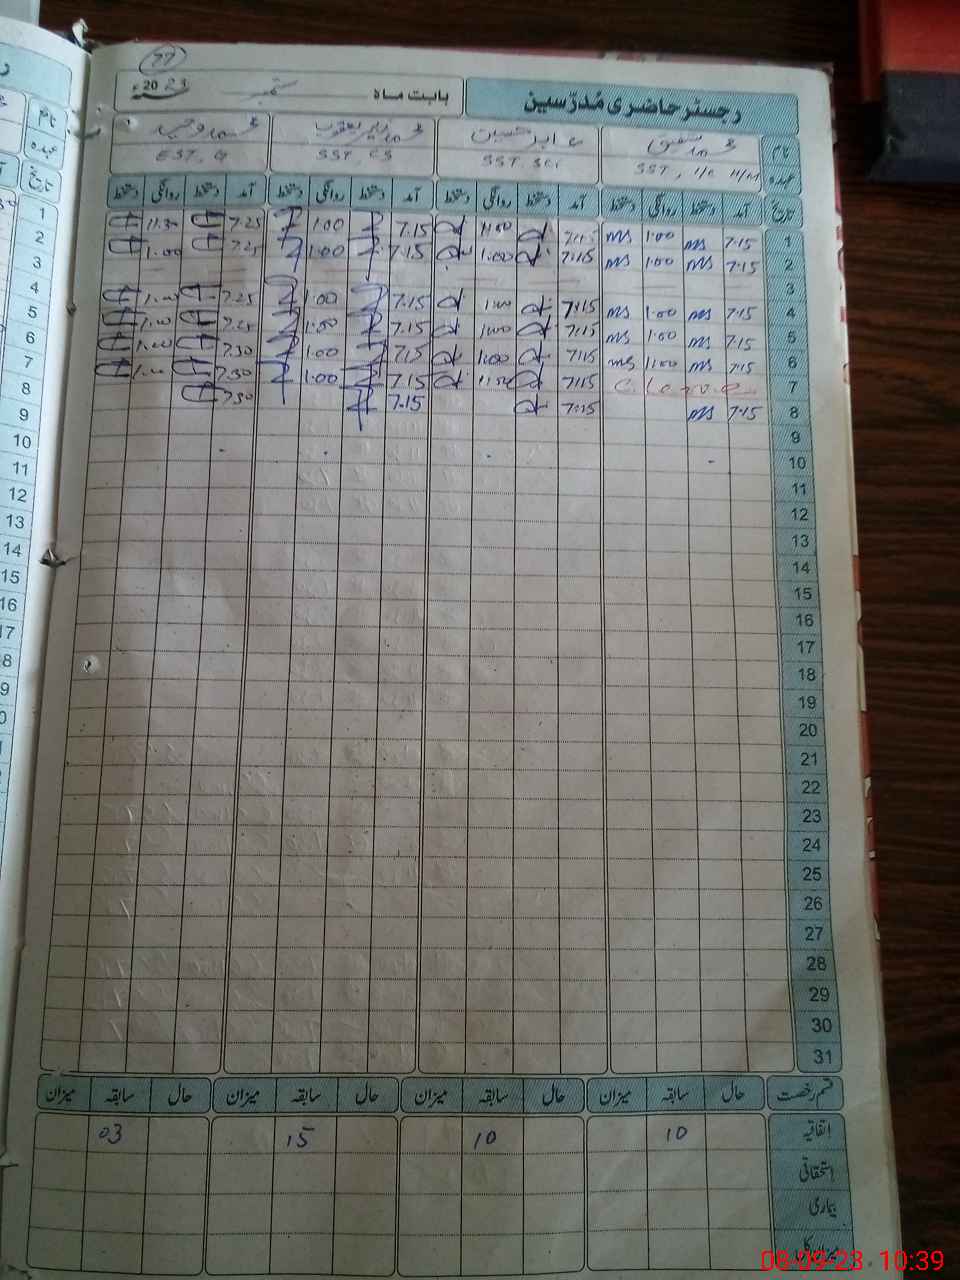 22
رجسٹر حاضری مُدرّسین
بابت ماہ ستمبر 2023ء
نام محمد شفیق عابد حسین محمد زبیر یعقوب محمد وحید
عہدہ SST, I/C H/M SST SCI SST, CS EST, G
تاریخ آمد دستخط روانگی دستخط آمد دستخط روانگی دستخط آمد دستخط روانگی دستخط آمد دستخط روانگی دستخط
1 7.15 MS 1.00 MS 7:15 1:00 7.15 1.00 7.25 11.30
2 7.15 MS 1.00 MS 7:15 1:00 7.15 1.00 7.25 1.00
3
4 7.15 MS 1.00 MS 7:15 1:00 7.15 1.00 7.25 1.00
5 7.15 MS 1.00 MS 7:15 1:00 7.15 1.00 7.25 1.00
6 7.15 MS 1:00 MS 7:15 1:00 7.15 1.00 7.30 1.00
7 C. Leave 7:15 7.15 1.00 7.30 1.00
8 7.15 MS 7:15 7.15 7.30
9
10
11
12
13
14
15
16
17
18
19
20
21
22
23
24
25
26
27
28
29
30
31
قسم رخصت حال سابقہ میزان حال سابقہ میزان حال سابقہ میزان حال سابقہ میزان
اتفاقیہ 10 10 15 03
استحقاقی
بیماری
08-09-23 10:39